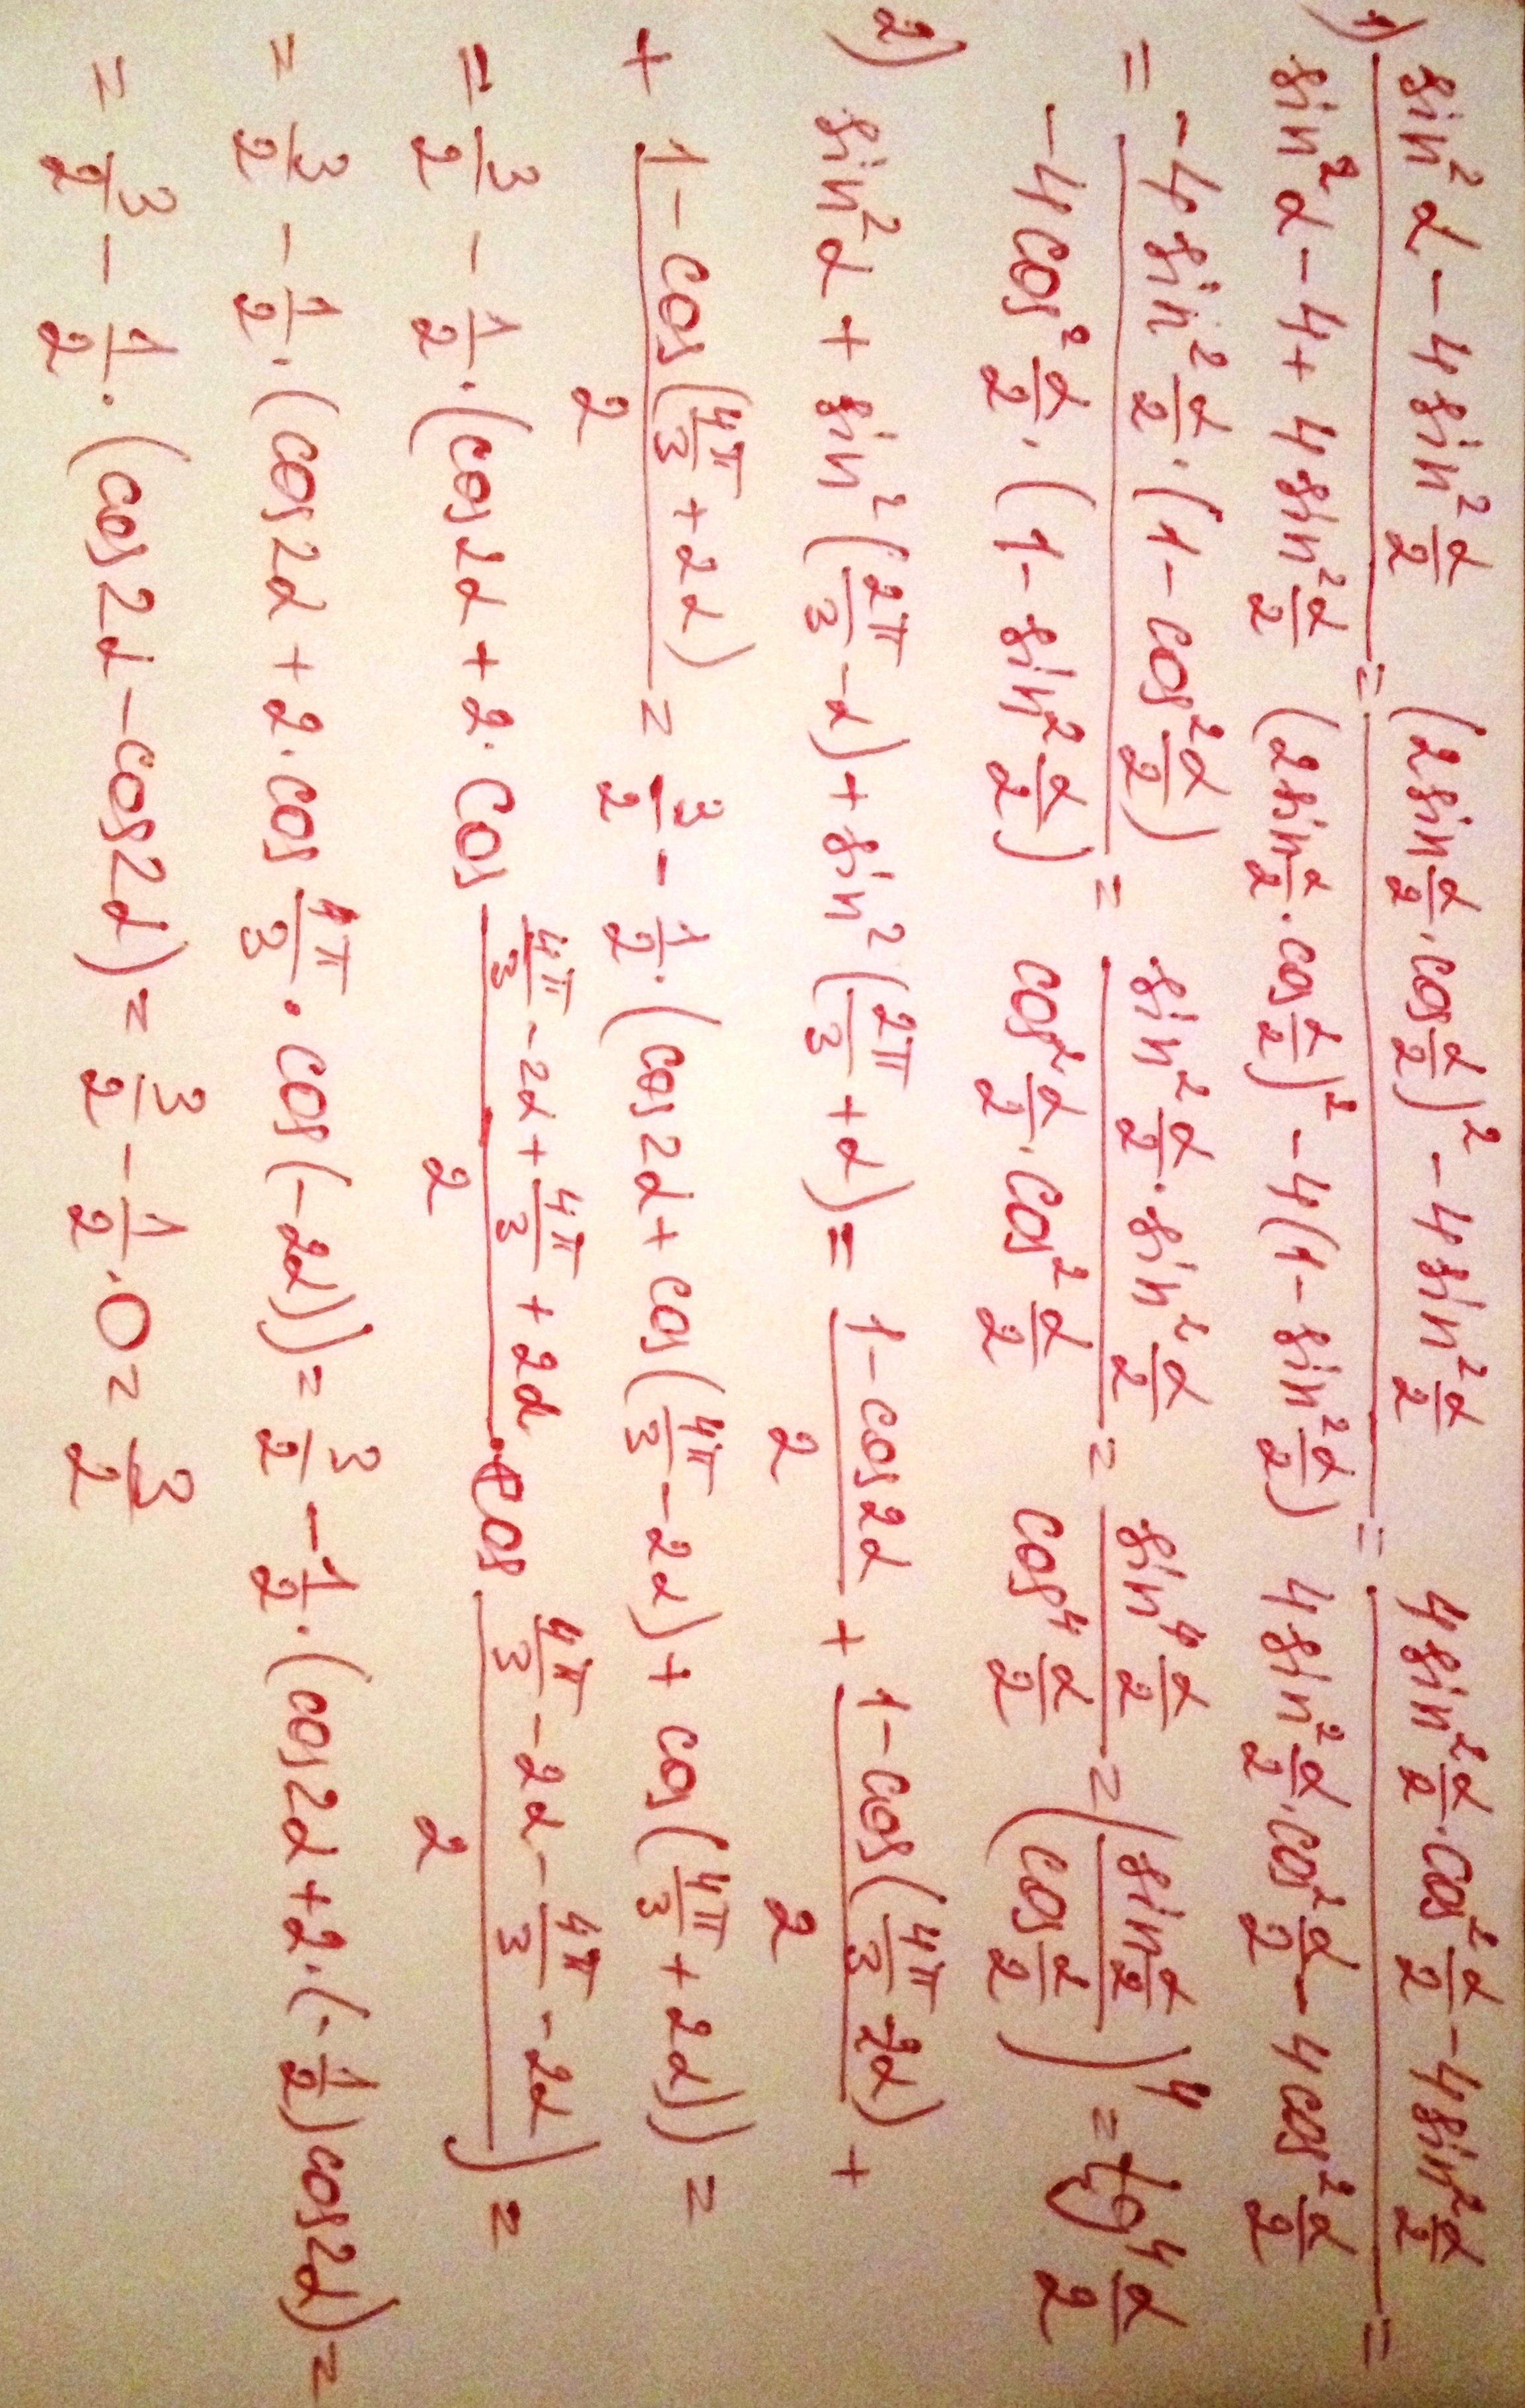 1) (sin²α - 4sin² α/2)/(sin²α - 4 + 4sin² α/2) = ((2sin α/2 · cos α/2)² - 4sin² α/2)/((2sin α/2 · cos α/2)² - 4(1 - sin² α/2)) = (4sin² α/2 · cos² α/2 - 4sin² α/2)/(4sin² α/2 · cos² α/2 - 4cos² α/2) =
= (-4sin² α/2 · (1 - cos² α/2))/(-4cos² α/2 · (1 - sin² α/2)) = (sin² α/2 · sin² α/2)/(cos² α/2 · cos² α/2) = (sin⁴ α/2)/(cos⁴ α/2) = ((sin α/2)/(cos α/2))⁴ = tg⁴ α/2
2) sin²α + sin²(2π/3 - α) + sin²(2π/3 + α) = (1 - cos2α)/2 + (1 - cos(4π/3 - 2α))/2 +
+ (1 - cos(4π/3 + 2α))/2 = 3/2 - 1/2 · (cos2α + cos(4π/3 - 2α) + cos(4π/3 + 2α)) =
= 3/2 - 1/2 · (cos2α + 2 · cos (4π/3 - 2α + 4π/3 + 2α)/2 · cos (4π/3 - 2α - 4π/3 - 2α)/2) =
= 3/2 - 1/2 · (cos2α + 2 · cos 4π/3 · cos(-2α)) = 3/2 - 1/2 · (cos2α + 2 · (-1/2) cos2α) =
= 3/2 - 1/2 · (cos2α - cos2α) = 3/2 - 1/2 · 0 = 3/2